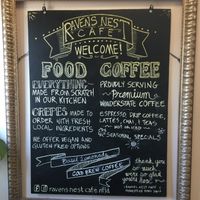 RAVENS NEST
CAFE
WELCOME!
FOOD
EVERYTHING
MADE FROM SCRATCH
IN OUR KITCHEN
CREPES MADE TO
ORDER WITH FRESH
LOCAL INGREDIENTS
WE OFFER VEGAN AND
GLUTEN FREE OPTIONS
COFFEE
PROUDLY SERVING
Premium
WONDERSTATE COFFEE
ESPRESSO, DRIP COFFEE,
LATTES, CHAI, & TEAS
HOT OR ICED
SEASONAL SPECIALS
LEMONADE
COLD BREW COFFEE
thank you
so much
we're so glad
you're here!
ravens nest cafe